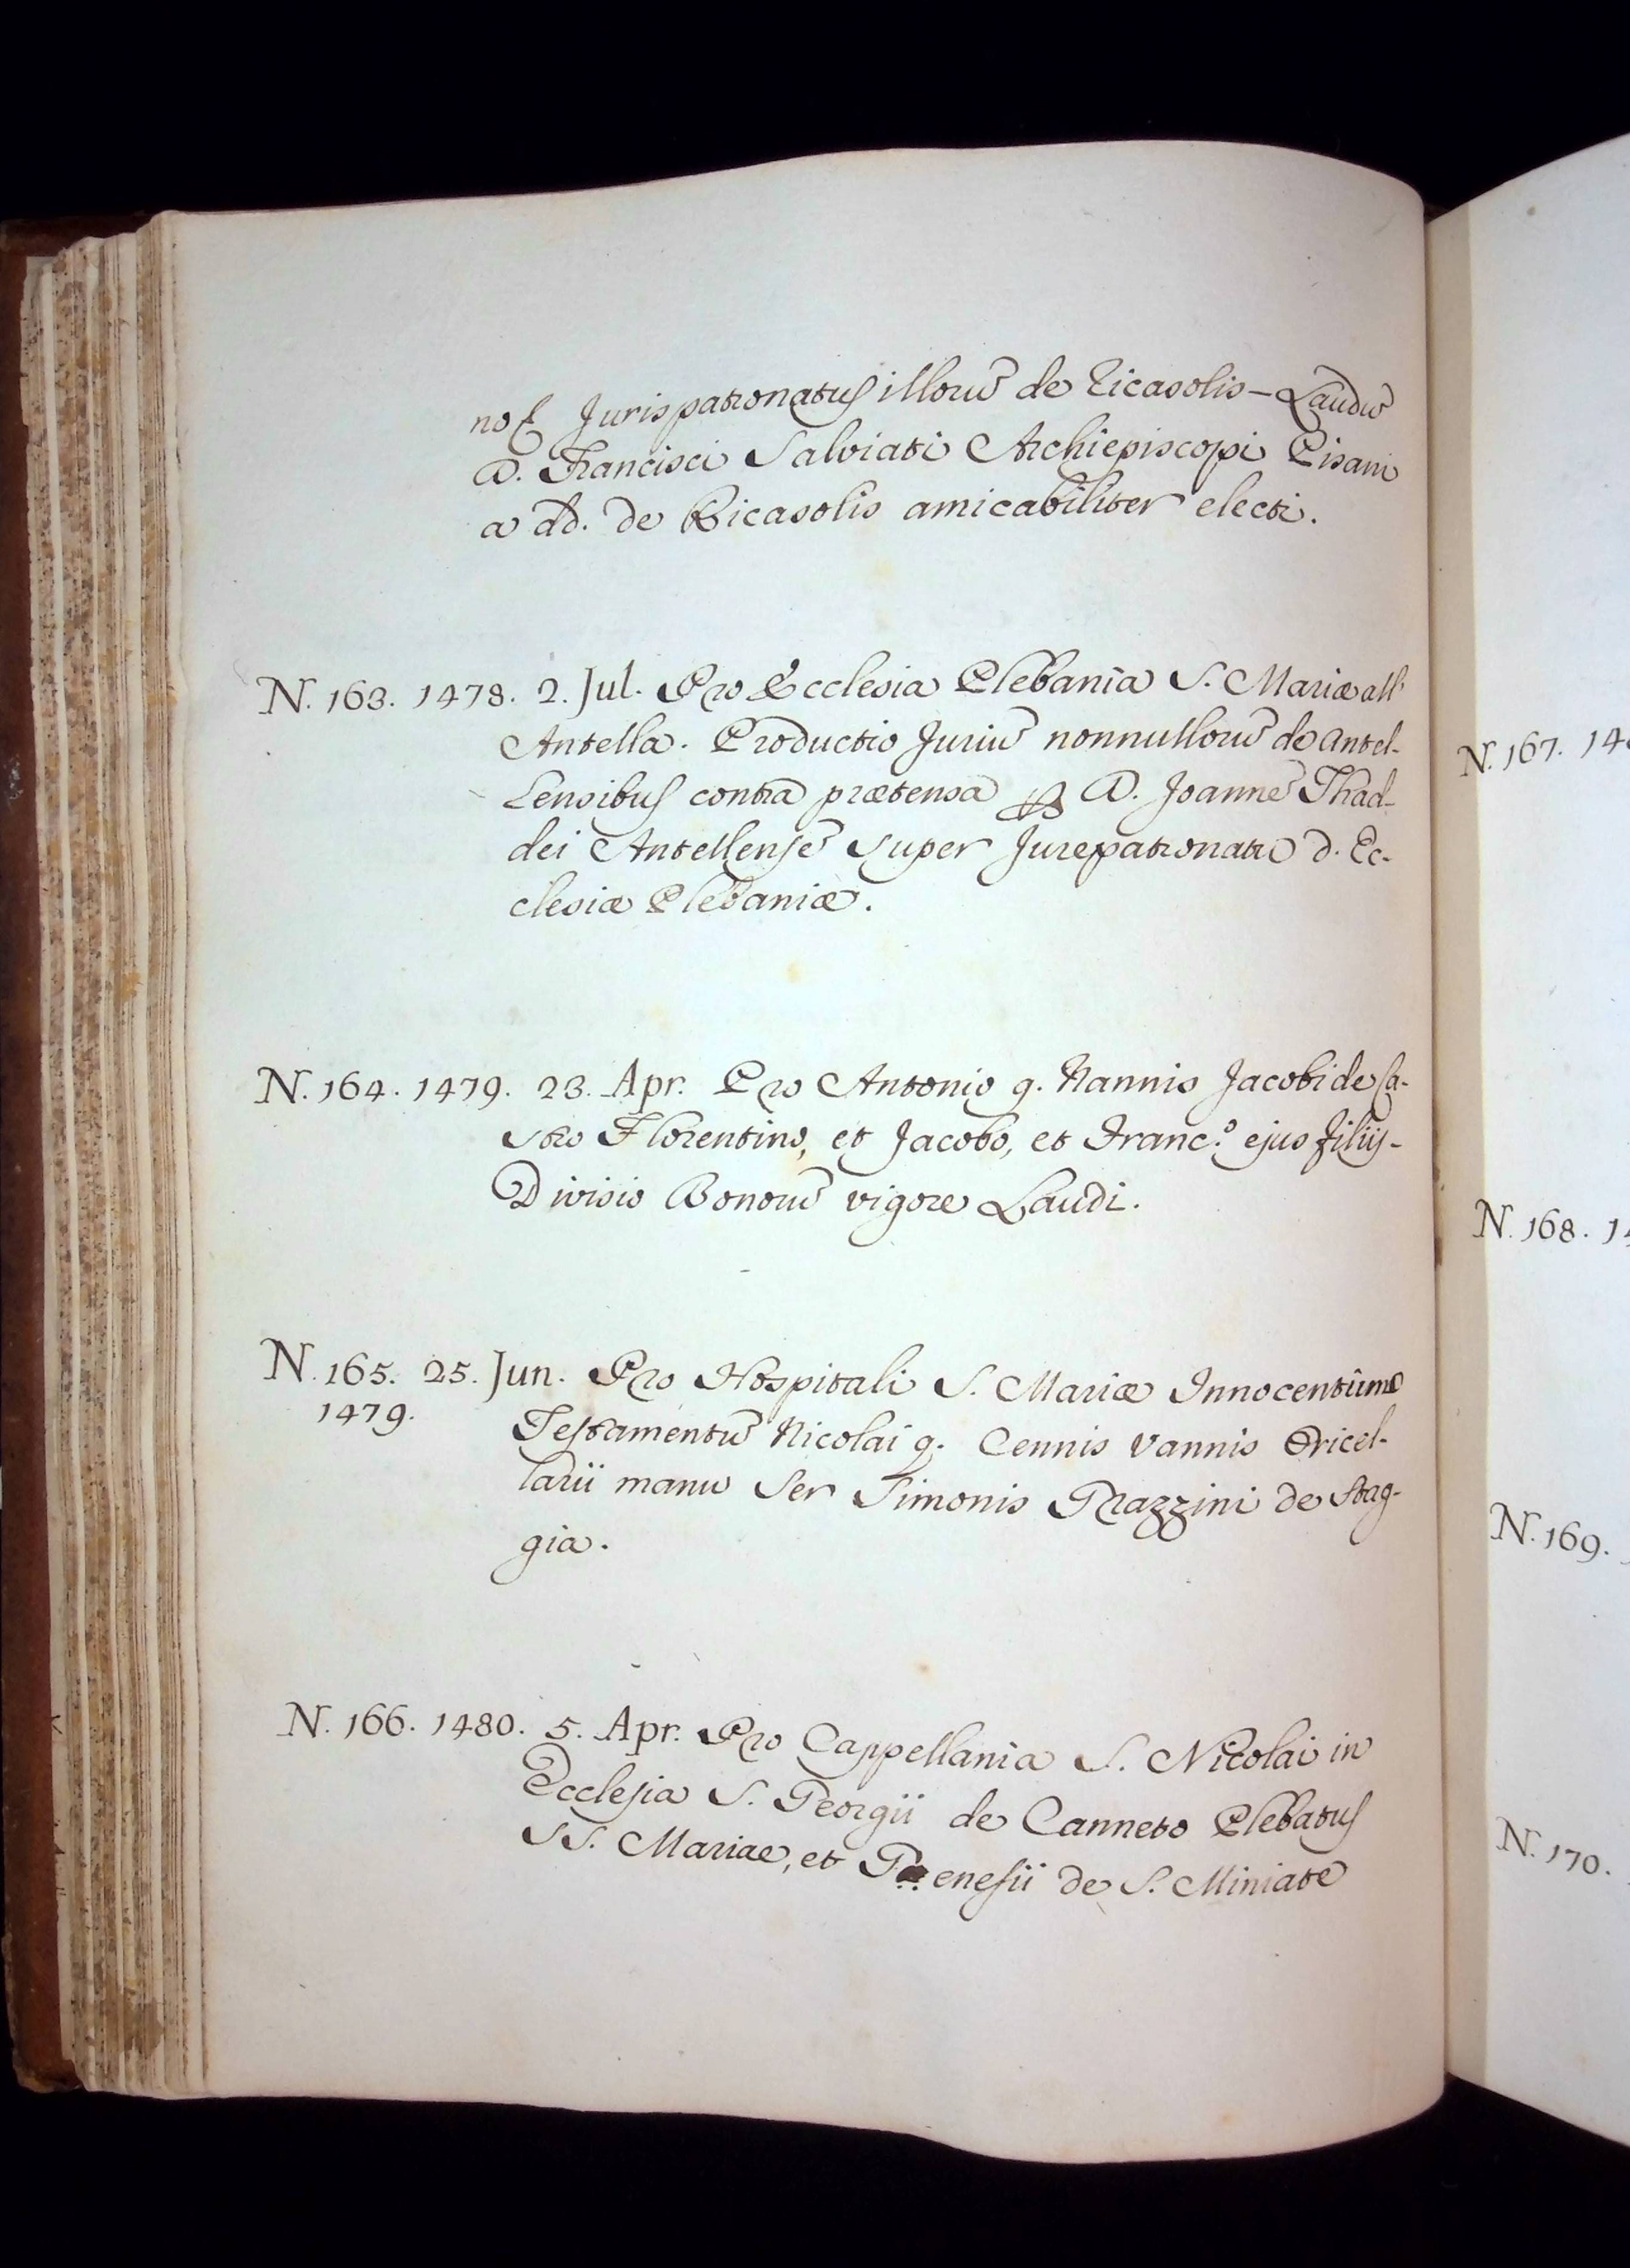 nos Jurispatronatus illorũ de Ricasolis – Laudũ
D. Francisci Salviati Archiepiscopi Pisani
a dd. de Ricasolis amicabiliter electi.
N. 163. 1478. 2. Jul. Pro Ecclesia Plebania S. Mariæ all'
Antella. Productio Juriũ nonnullorũ de Antel-
lensibus contra prætensa D. Joannẽ Thad-
dei Antellensẽ super Jurepatronatu d. Ec-
clesiæ Plebaniæ.
N. 164. 1479. 23. Apr. Pro Antonio q. Nannis Jacobi de Ca-
stro Florentino, et Jacobo, et Franc.º ejus filiis-
Divisio Bonorũ vigore Laudi.
N. 165. 25. Jun. Pro Hospitali S. Mariæ Innocentium
1479. Testamentũ Nicolai q. Cennis Vannis Oricel-
larii manu Ser Simonis Grazzini de Stag-
gia.
N. 166. 1480. 5. Apr. Pro Cappellania S. Nicolai in
Ecclesia S. Georgii de Canneto Plebatus
SS. Mariae, et Genesii de S. Miniate
N. 167. 14
N. 168. 14
N. 169.
N. 170.